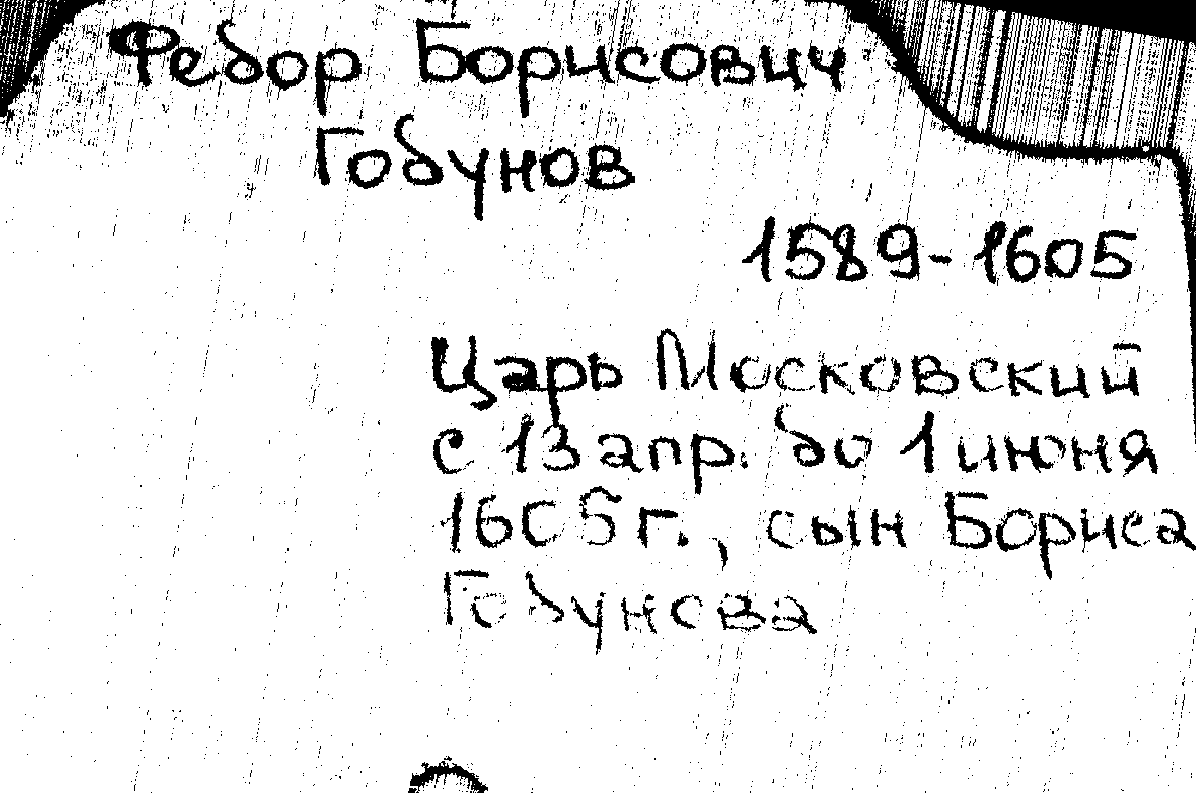 Федор Борисович
Годунов
1589-1605
Царь Московский
с 13 апр. до 1 июня
1605 г., сын Бориса
Годунова